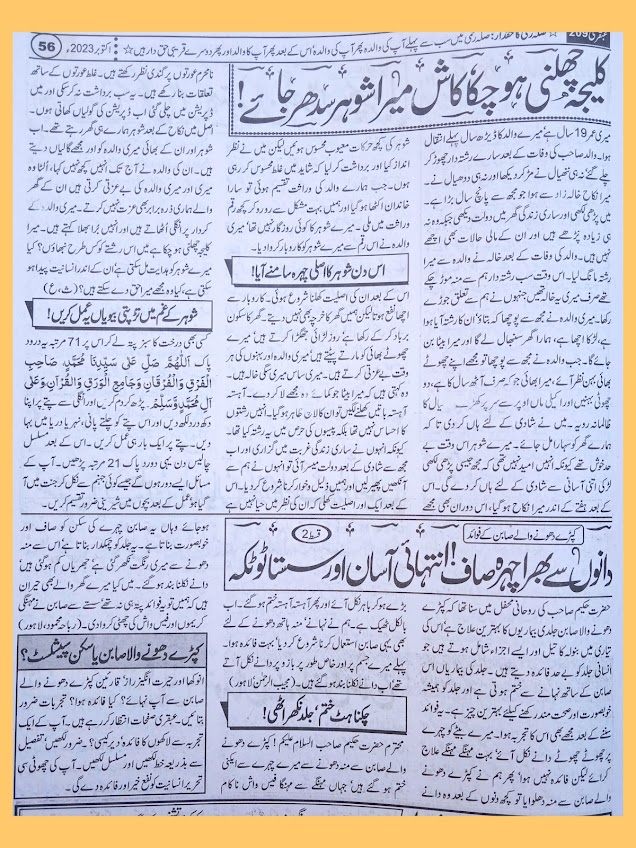 56
اکتوبر 2023ء
صلہ رحمی کا حقدار: صلہ رحمی میں سب سے پہلے آپ کی والدہ پھر آپ کی والدہ اس کے بعد پھر آپ کا والد اور پھر دوسرے قریبی حق دار ہیں
کلیجہ چھلنی ہوچکا کاش میرا شوہر سدھر جائے!
میری عمر 19 سال ہے میرے والد کا ڈیڑھ سال پہلے انتقال
ہوا۔ والد صاحب کی وفات کے بعد سارے رشتہ دار چھوڑ کر
چلے گئے نہ ہی ننھیال نے مڑ کر دیکھا اور نہ ہی ددھیال نے۔
میرا نکاح خالہ زاد سے ہوا جو مجھ سے پانچ سال بڑا ہے۔
میں پڑھی لکھی اور ساری زندگی گھر میں دولت دیکھی جبکہ وہ نہ
ہی زیادہ پڑھے ہیں اور ان کے مالی حالات بھی اچھے
نہیں۔ والد کی وفات کے بعد خالہ نے والدہ سے میرا
رشتہ مانگ لیا۔ اس وقت سب رشتہ دار ہم سے منہ موڑ چکے
تھے صرف میری یہ خالہ تھیں جنہوں نے ہم سے تعلق جوڑے
رکھا۔ میری والدہ نے مجھ سے پوچھا کہ بتاؤ ان کا رشتہ آیا ہوا
ہے، لڑکا اچھا ہے، ہمارا گھر سنبھال لے گا اور میرا بیٹا بن
جائے گا۔ جب والدہ نے مجھ سے پوچھا تو مجھے اپنے چھوٹے
بھائی، بہن نظر آئے، میرا بھائی جو کہ صرف آٹھ سال کا ہے، دو
چھوٹی بہنیں اور اکیلی ماں اوپر سے سر پر
ظالمانہ رویہ۔ میں نے شادی کے لئے ہاں کر دی تا کہ
ہمارے گھر کو سہارا مل جائے۔ میرے شوہر اس وقت بے
حد خوش تھے کیونکہ انہیں امید نہیں تھی کہ مجھ جیسی پڑھی لکھی
لڑکی اتنی آسانی سے شادی کے لئے ہاں کر دے گی۔ اس
کے بعد ہفتے کے اندر میرا نکاح ہو گیا، اس دوران بھی مجھے
شوہر کی کچھ حرکات معیوب محسوس ہوئیں لیکن میں نے نظر
انداز کیا اور برداشت کر لیا کہ شاید میں غلط محسوس کر رہی
ہوں۔ جب ہمارے والد کی وراثت تقسیم ہوئی تو سارا
خاندان اکٹھا ہو گیا اور ہمیں بہت مشکل سے رو رو کر کچھ رقم
وراثت میں ملی۔ میرے شوہر کا کوئی روزگار نہیں تھا، میری
والدہ نے اس رقم سے میرے شوہر کو کاروبار کروا دیا۔
اس دن شوہر کا اصلی چہرہ سامنے آیا!
اس کے بعد ان کی اصلیت کھلنا شروع ہوئی۔ کاروبار سے
اچھا نفع ہوتا لیکن ہمیں گھر کا خرچہ بھی نہیں دیتے۔ گھر کا سکون
برباد کر کے رکھا ہے، روز لڑائی جھگڑا کرتے ہیں، میرے
چھوٹے بھائی کو مارتے پیٹتے ہیں، میری والدہ اور بہنوں کی ہر
وقت بے عزتی کرتے ہیں۔ میری ساس میری سگی خالہ ہیں۔
وہ کہتی ہیں کہ میرا بیٹا جو کمائے وہ مجھے لا کر دے۔ آہستہ
آہستہ باتیں کھلنے لگیں تو ان کا لالچ ظاہر ہو گیا۔ انہیں رشتوں
کا احساس نہیں تھا بلکہ پیسوں کی حرص میں یہ رشتہ کیا تھا۔
کیونکہ انہوں نے ساری زندگی غربت میں گزاری اور اب
مجھ سے شادی کے بعد دولت میسر آئی تو انہوں نے ہم سے
آنکھیں پھیر لیں اور ہمیں ذلیل و خوار کرنا شروع کر دیا۔ اس
کے بعد ایک اور اصلیت کھلی کہ ان کی نظر میں حیا نہیں ہے
نامحرم عورتوں پر گندی نظر رکھتے ہیں۔ غلط عورتوں کے ساتھ
تعلقات بنا رکھے ہیں۔ یہ سب برداشت نہ کر سکی اور میں
ڈپریشن میں چلی گئی اب ڈپریشن کی گولیاں کھاتی ہوں۔
اصل میں نکاح کے بعد شوہر ہمارے ہی گھر رہتے تھے۔ اب
شوہر اور ان کے بھائی میری والدہ کو اور مجھے گالیاں دیتے
ہیں۔ ان کی والدہ نے آج تک انہیں کچھ نہیں کہا، الٹا وہ
میری اور میری والدہ کی بے عزتی کرتی ہیں ان کے گھر
والے ہماری ذرہ برابر بھی عزت نہیں کرتے۔ میری والدہ کے
کردار پر انگلی اٹھاتے ہیں اور انہیں برا بھلا کہتے ہیں۔ میرا
کلیجہ چھلنی ہو چکا ہے میں اس رشتے کو کس طرح نبھاؤں؟ کیا
میرے شوہر کو ہدایت مل سکتی ہے ان کے اندر انسانیت پیدا ہو
سکتی ہے، کیا وہ مجھے میرا حق دے سکتے ہیں؟ (ث،ع)
شوہر کے غم میں تڑپتی بیویاں یہ عمل کریں!
کسی بھی درخت کا سبز پتہ لے کر اس پر 71 مرتبہ یہ درود
پاک اَللّٰھُمَّ صَلِّ عَلٰی سَیِّدِنَا مُحَمَّدٍ صَاحِبِ
الْفَرْقِ وَالْفُرْقَانِ وَجَامِعِ الْوَرَقِ وَالْقُرْآنِ وَعَلٰی
اٰلِ مُحَمَّدٍ وَّسَلِّمْ۔ پڑھ کر دم کریں اور انگلی سے پتے پر اپنا
دکھ درد لکھ دیں اور اس پتے کو چلتے پانی، نہر یا دریا میں بہا
دیں۔ پتے پر ایک بار ہی عمل کریں۔ اس کے بعد مسلسل
چالیس دن یہی درود پاک 21 مرتبہ پڑھیں۔ آپ کے
مسائل ایسے دور ہوں گے جیسے کوئی جہنم سے نکل کر جنت میں آ
گیا ہو، عمل کے بعد بچوں میں شیرینی ضرور تقسیم کریں۔
کپڑے دھونے والے صابن کے فوائد
قسط 2
دانوں سے بھرا چہرہ صاف! انتہائی آسان اور سستا ٹوٹکہ
حضرت حکیم صاحب کی روحانی محفل میں سنا تھا کہ کپڑے
دھونے والا صابن جلدی بیماریوں کا بہترین علاج ہے، اس کی
تیاری میں بنولہ کا تیل اور ایسے اجزاء شامل ہوتے ہیں جو
انسانی جلد کو بے حد فائدہ دیتے ہیں۔ جلد کی بیماریاں اس
صابن کے ساتھ نہانے سے ختم ہوتی ہے اور جلد کو ہمیشہ
خوبصورت اور صحت مند رکھنے کیلئے بہترین چیز ہے۔ یہ فوائد
سننے کے بعد مجھے بھی اس کا تجربہ ہوا۔ میرے بیٹے کو چہرے
پر چھوٹے چھوٹے دانے نکل آئے، بہت مہنگے مہنگے علاج
کرائے لیکن فائدہ نہیں ہوا، پھر ہم نے کپڑے دھونے
والے صابن سے منہ دھلوایا تو کچھ دنوں کے بعد وہ دانے
بڑے ہو کر باہر نکل آئے اور پھر آہستہ آہستہ ختم ہو گئے۔ اب
بالکل ٹھیک ہے۔ ہم نے نہانے، منہ ہاتھ دھونے کے لئے
بھی یہی صابن استعمال کرنا شروع کر دیا، بہت فائدہ ہوا۔
پہلے میرے جسم پر اور خاص طور پر بازو پر دانے نکل آتے
تھے، اب دانے نکلنا بند ہو گئے ہیں۔ (مجیب الرحمٰن لاہور)
چکناہٹ ختم، جلد نکھر اٹھی!
محترم حضرت حکیم صاحب السلام علیکم! کپڑے دھونے
والے صابن سے منہ دھونے سے میرے چہرے سے ایکنی
ختم ہو گئے ہیں، جہاں مہنگے سے مہنگا فیس واش ناکام
ہو جائے وہاں یہ صابن چہرے کی سکن کو صاف اور
خوبصورت بناتا ہے۔ یہ جلد کو چمکدار بناتا ہے، اس سے منہ
دھونے سے میری رنگت نکھر گئی ہے، جھریاں کم ہو گئی ہیں،
دانے نکلنا بند ہو گئے۔ میں کیا میرے گھر والے بھی حیران
ہیں کہ ہمیں تو یہ فوائد پتہ ہی نہ تھے، سستے سے صابن نے مہنگی
کریموں اور فیس واش کی چھٹی کروا دی۔ (رباب محمود، لاہور)
کپڑے دھونے والا صابن یا سکن سپیشلسٹ؟
انوکھا اور حیرت انگیز راز! قارئین کپڑے دھونے والے
صابن سے آپ نہائے؟ کیا فائدہ ہوا؟ تجربات ضرور
بتائیں۔ عبقری صفحات انتظار کر رہے ہیں۔ آپ کے ایک
تجربہ سے لاکھوں کا فائدہ، دیر کیسی؟ ضرور لکھیں، تفصیل
سے بذریعہ خط لکھیں اور مسلسل لکھیں۔ آپ کی چھوٹی سی
تحریر انسانیت کو نفع، خیر اور فائدہ دے گی۔